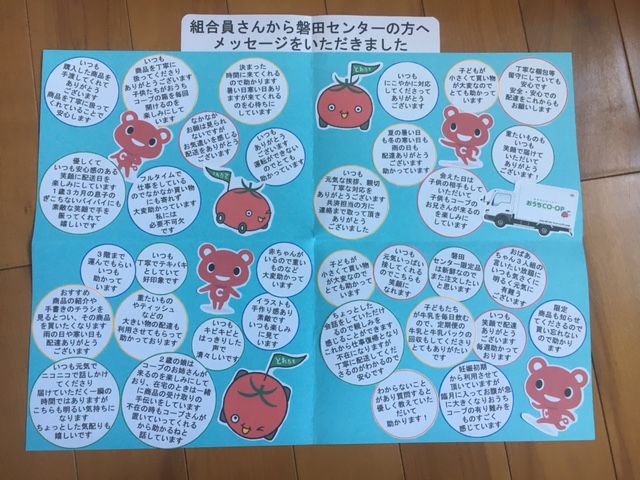 組合員さんから磐田センターの方へ
メッセージをいただきました
いつも
購入した商品を
手渡してくれて
ありがとう
ございます
商品を丁寧に扱って
くれていることで
安心します
いつも
商品を丁寧に
扱ってくださり
ありがとうございます
子供たちがおうち
コープの箱を毎回
開けるのを
楽しみにして
います
決まった
時間に来てくれる
ので助かります
暑い日寒い日あり
ますが来てくれる
のを心待ちに
しています
なかなか
お顔は見られ
ないですが
お気遣いを感じる
配送をありがとう
ございます
いつも
ありがとう
ございます
運転ができない
のでとても
助かっています
優しくて
いつも安心感のある
笑顔に配送日を
楽しみにしています
1歳3カ月の息子の
ぎこちないバイバイにも
素敵な笑顔で手を
振ってくれて
嬉しいです
フルタイムで
仕事をしている
のでなかなか買い物
にも寄れず
大変助かっています
私には
必要不可欠
です
いつも
にこやかに対応
してくださって
ありがとう
ございます
子どもが
小さくて買い物
が大変なので
とても助かって
います
丁寧な梱包等
留守にしていても
安心です
安全・安心での
配達をこれからも
お願いします
夏の暑い日
も冬の寒い日も
雨の日も
配達ありがとう
ございます
重たいものも
いつも
笑顔で届けて
いただいて
ありがとう
ございます!
いつも
元気な挨拶、親切
丁寧な対応を
ありがとうございます
共済担当の方に
連絡まで取って頂き
ありがとうござい
ました
会えた日は
子供の相手もして
いただける
子供もコープの
お兄さんが来るの
を楽しみに
しています
おうちCO-OP
3階まで
運んでもらい
いつも
助かって
います
いつも
丁寧でテキパキ
としていて
好印象です
赤ちゃんが
いるので重い
ものなど
大変助かって
います
おすすめ
商品の紹介や
手書きのチラシを
見るとつい、その商品
を買いたくなります
雨の日や寒い日も
配達ありがとう
ございます
重たいもの
やティッシュ
などの
大きい物の配達も
利用させてもらって
助かっており
ます
いつも
キビキビと
はっきりした
声で
清々しいです
イラストも
手作り感あり
素敵です
いつも楽しみ
に見て
います
いつも元気で
ニコニコで話しかけ
てくださり
届けていただく一瞬の
時間ではありますが
こちらも明るい気持ちに
なります
ちょっとした気配りも
嬉しいです
2歳の娘は
コープのお姉さんが
来るのを楽しみにして
おり、在宅のときは一緒
に商品の受け取りの
手伝いをしています
不在の時もコープさんが
置いていってくれる
から助かるねと
話しています
子どもが
小さくて買い物
が大変なので
とても助かって
います
いつも
元気いっぱいに
接してくれる
のでこちらも
笑顔に
なれます
磐田
センター限定品
は新鮮なので
また注文したい
と思います
おばあ
ちゃん3人組の
言いたい放題に
いつも気さくに
明るく元気に
有難う
ございます
ちょっとした
会話をしていただけ
るので親しみを
感じることができます
これからは仕事復帰となり
不在になりますが
丁寧に配送してくだ
さるのがわかるので
安心です
子どもたち
が牛乳を毎日飲む
ので、定期便の
牛乳と牛乳パックの
回収もしてくださる
とてもありがたい
です
いつも
笑顔で配達
ありがとう
ございます
毎週助かって
おります
限定
商品も知らせ
てくださるので
買い忘れない
ので助かり
ます
わからないこと
があり質問すると
優しく教えていた
だいて
助かります!
妊娠初期
から利用させて
頂いていますが
臨月に入ってお腹が急
に大きくなりおうち
コープの有り難みを
ものすごく
感じています